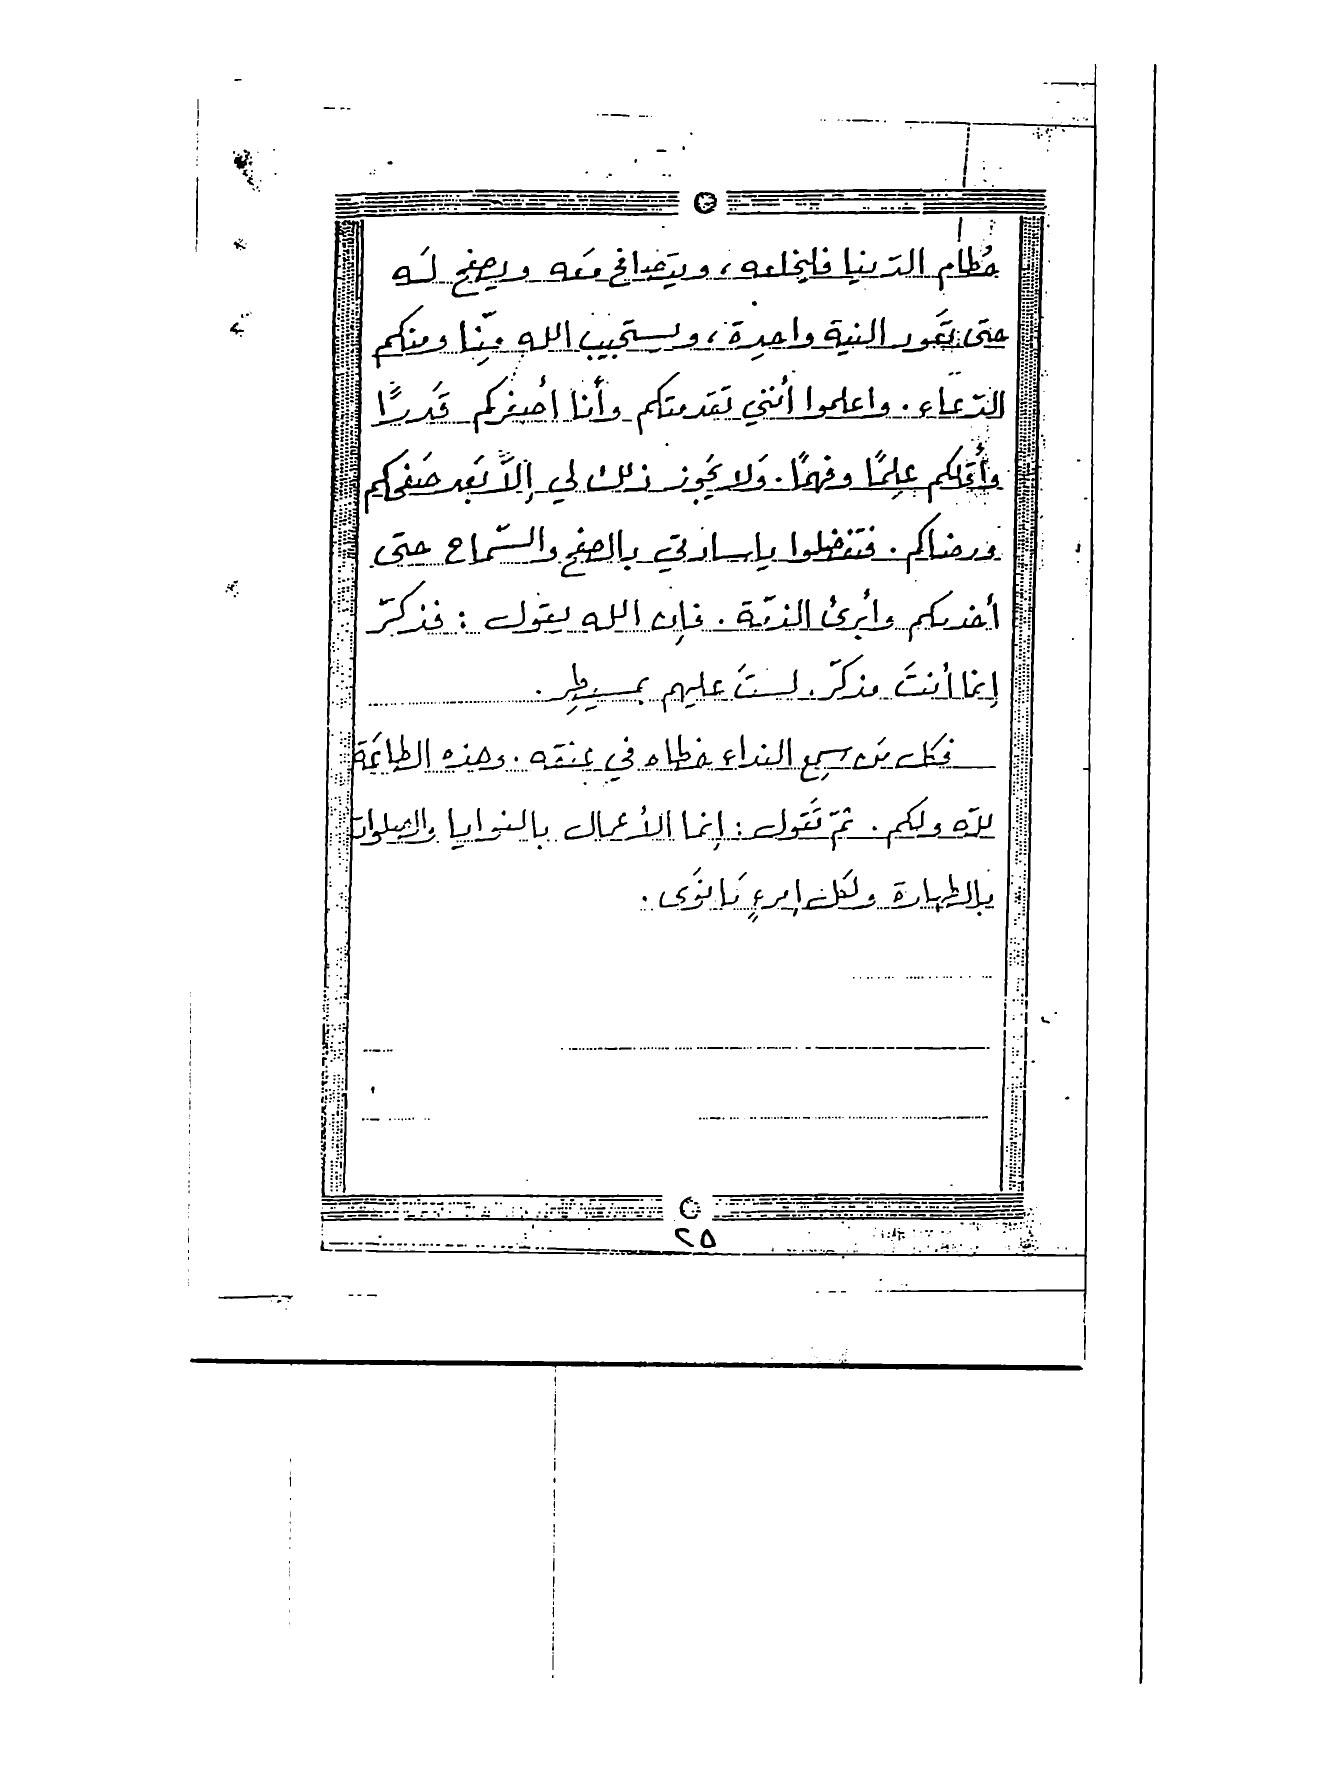 حُطام الدّنيا فليخلعه، ويتصافح مَعه ويصفح لَه
حتى تَعود النية واحِدة، ويستجيب الله مِنّا ومنكم
الدّعاء. واعلموا أنني تقدمتكم وأنا أصغركم قَدرًا
وأقلكم عِلمًا وفهمًا. وَلا يجُوز ذلك لي إلاّ بَعد صَفحكم
ورضاكم. فتَفضلوا ياسادتي بالصفح والسّماح حتى
أخدمكم وأبرئ الذمّة. فإن الله يقول: فذكّر
إنما أنتَ مذكّر. لستَ عليهم بمسيطِر.
فكل مَن سمِع النداء خطاه في عنقه. وهذه الطاعَة
للّه ولكم. ثمّ نَقول: إنما الأعمال بالنوايا والصلوات
بالطهارة ولكل امرءٍ مَا نوَى.
٢٥